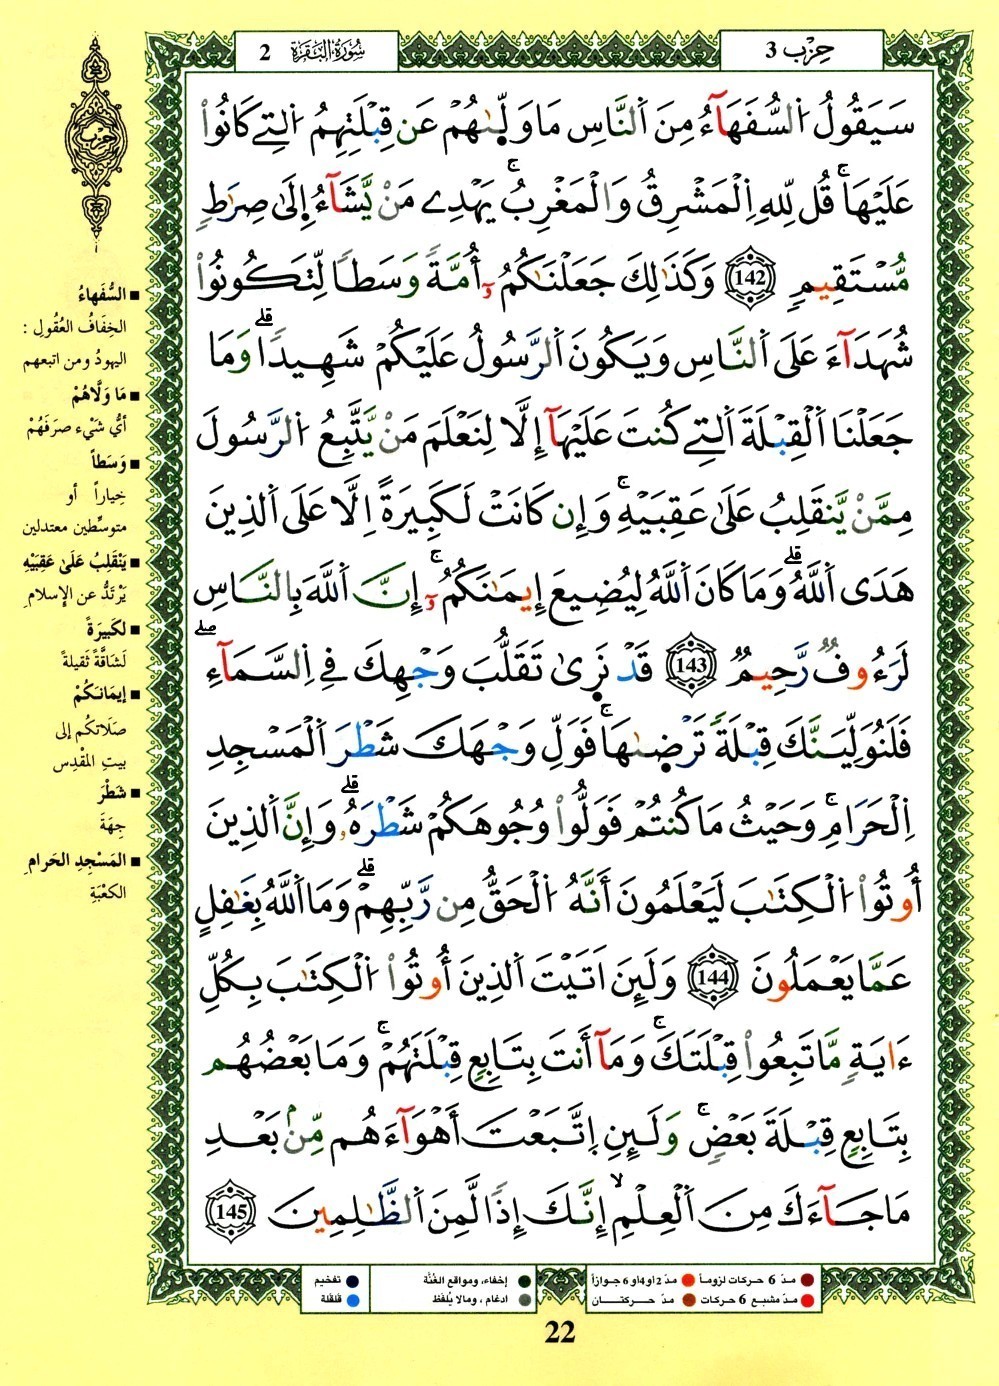 حِزْب 3
سُورَةُ البَقَرَة 2
حزب
سَيَقُولُ اُ۬لسُّفَهَآءُ مِنَ اَ۬لنَّاسِ مَا وَلّ۪ىٰهُمْ عَن قِبْلَتِهِمُ اُ۬لتِے كَانُواْ
عَلَيْهَاۚ قُل لِّلهِ اِ۬لْمَشْرِقُ وَالْمَغْرِبُۚ يَهْدِے مَنْ يَّشَآءُ إِلَىٰ صِرَٰطٖ
مُّسْتَقِيمٖ 142 وَكَذَٰلِكَ جَعَلْنَٰكُمُۥٓ أُمَّةٗ وَسَطاٗ لِّتَكُونُواْ
شُهَدَآءَ عَلَى اَ۬لنَّاسِ وَيَكُونَ اَ۬لرَّسُولُ عَلَيْكُمْ شَهِيداٗۗ وَمَا
جَعَلْنَا اَ۬لْقِبْلَةَ اَ۬لتِے كُنتَ عَلَيْهَآ إِلَّا لِنَعْلَمَ مَنْ يَّتَّبِعُ اُ۬لرَّسُولَ
مِمَّنْ يَّنقَلِبُ عَلَىٰ عَقِبَيْهِۚ وَإِن كَانَتْ لَكَبِيرَةً اِلَّا عَلَى اَ۬لذِينَ
هَدَى اَ۬للَّهُۗ وَمَا كَانَ اَ۬للَّهُ لِيُضِيعَ إِيمَٰنَكُمُۥٓۚ إِنَّ اَ۬للَّهَ بِالنَّاسِ
لَرَءُوفٞ رَّحِيمٞ 143 قَدْ نَر۪ىٰ تَقَلُّبَ وَجْهِكَ فِے اِ۬لسَّمَآءِۖ
فَلَنُوَلِّيَنَّكَ قِبْلَةٗ تَرْض۪ىٰهَاۚ فَوَلِّ وَجْهَكَ شَطْرَ اَ۬لْمَسْجِدِ
اِ۬لْحَرَامِۚ وَحَيْثُ مَا كُنتُمْ فَوَلُّواْ وُجُوهَكُمْ شَطْرَهُۥۗ وَإِنَّ اَ۬لذِينَ
أُوتُواْ اُ۬لْكِتَٰبَ لَيَعْلَمُونَ أَنَّهُ اُ۬لْحَقُّ مِن رَّبِّهِمْۗ وَمَا اَ۬للَّهُ بِغَٰفِلٍ
عَمَّا يَعْمَلُونَ 144 وَلَئِنَ اَتَيْتَ اَ۬لذِينَ أُوتُواْ اُ۬لْكِتَٰبَ بِكُلِّ
ءَايَةٖ مَّا تَبِعُواْ قِبْلَتَكَۚ وَمَآ أَنتَ بِتَابِعٖ قِبْلَتَهُمْۚ وَمَا بَعْضُهُم
بِتَابِعٖ قِبْلَةَ بَعْضٖۚ وَلَئِنِ اِ۪تَّبَعْتَ أَهْوَآءَهُم مِّنۢ بَعْدِ
مَا جَآءَكَ مِنَ اَ۬لْعِلْمِۙ إِنَّكَ إِذاٗ لَّمِنَ اَ۬لظَّٰلِمِينَ 145
■ السُّفَهاءُ
الخِفَافُ العُقُولِ :
اليهودُ ومن اتبعهم
■ مَا وَلَّاهُمْ
أيُّ شَيْء صرَفَهُمْ
■ وَسَطاً
خِياراً أو
متوسِّطين معتدلين
■ يَنْقَلِبُ عَلَىٰ عَقِبَيْهِ
يَرْتَدُّ عن الإسلامِ
■ لَكَبِيرَةً
لَشَاقَّةً ثَقيلةً
■ إيمَانَكُمْ
صَلَاتَكُم إلى
بيتِ المَقْدِس
■ شَطْرَ
جِهَةَ
■ المَسْجِدِ الحَرامِ
الكَعْبَةِ
مدّ 6 حركات لزوماً مدّ 2 أو 4 أو 6 جوازاً
مدّ مشبع 6 حركات مدّ حركتان
إخفاء، ومواقع الغُنَّة
ادغام ، ومالا يُلفظ
تفخيم
قلقلة
22